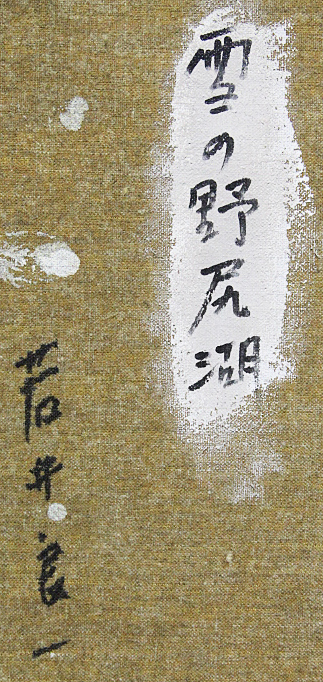 雪の野尻湖
若井良一